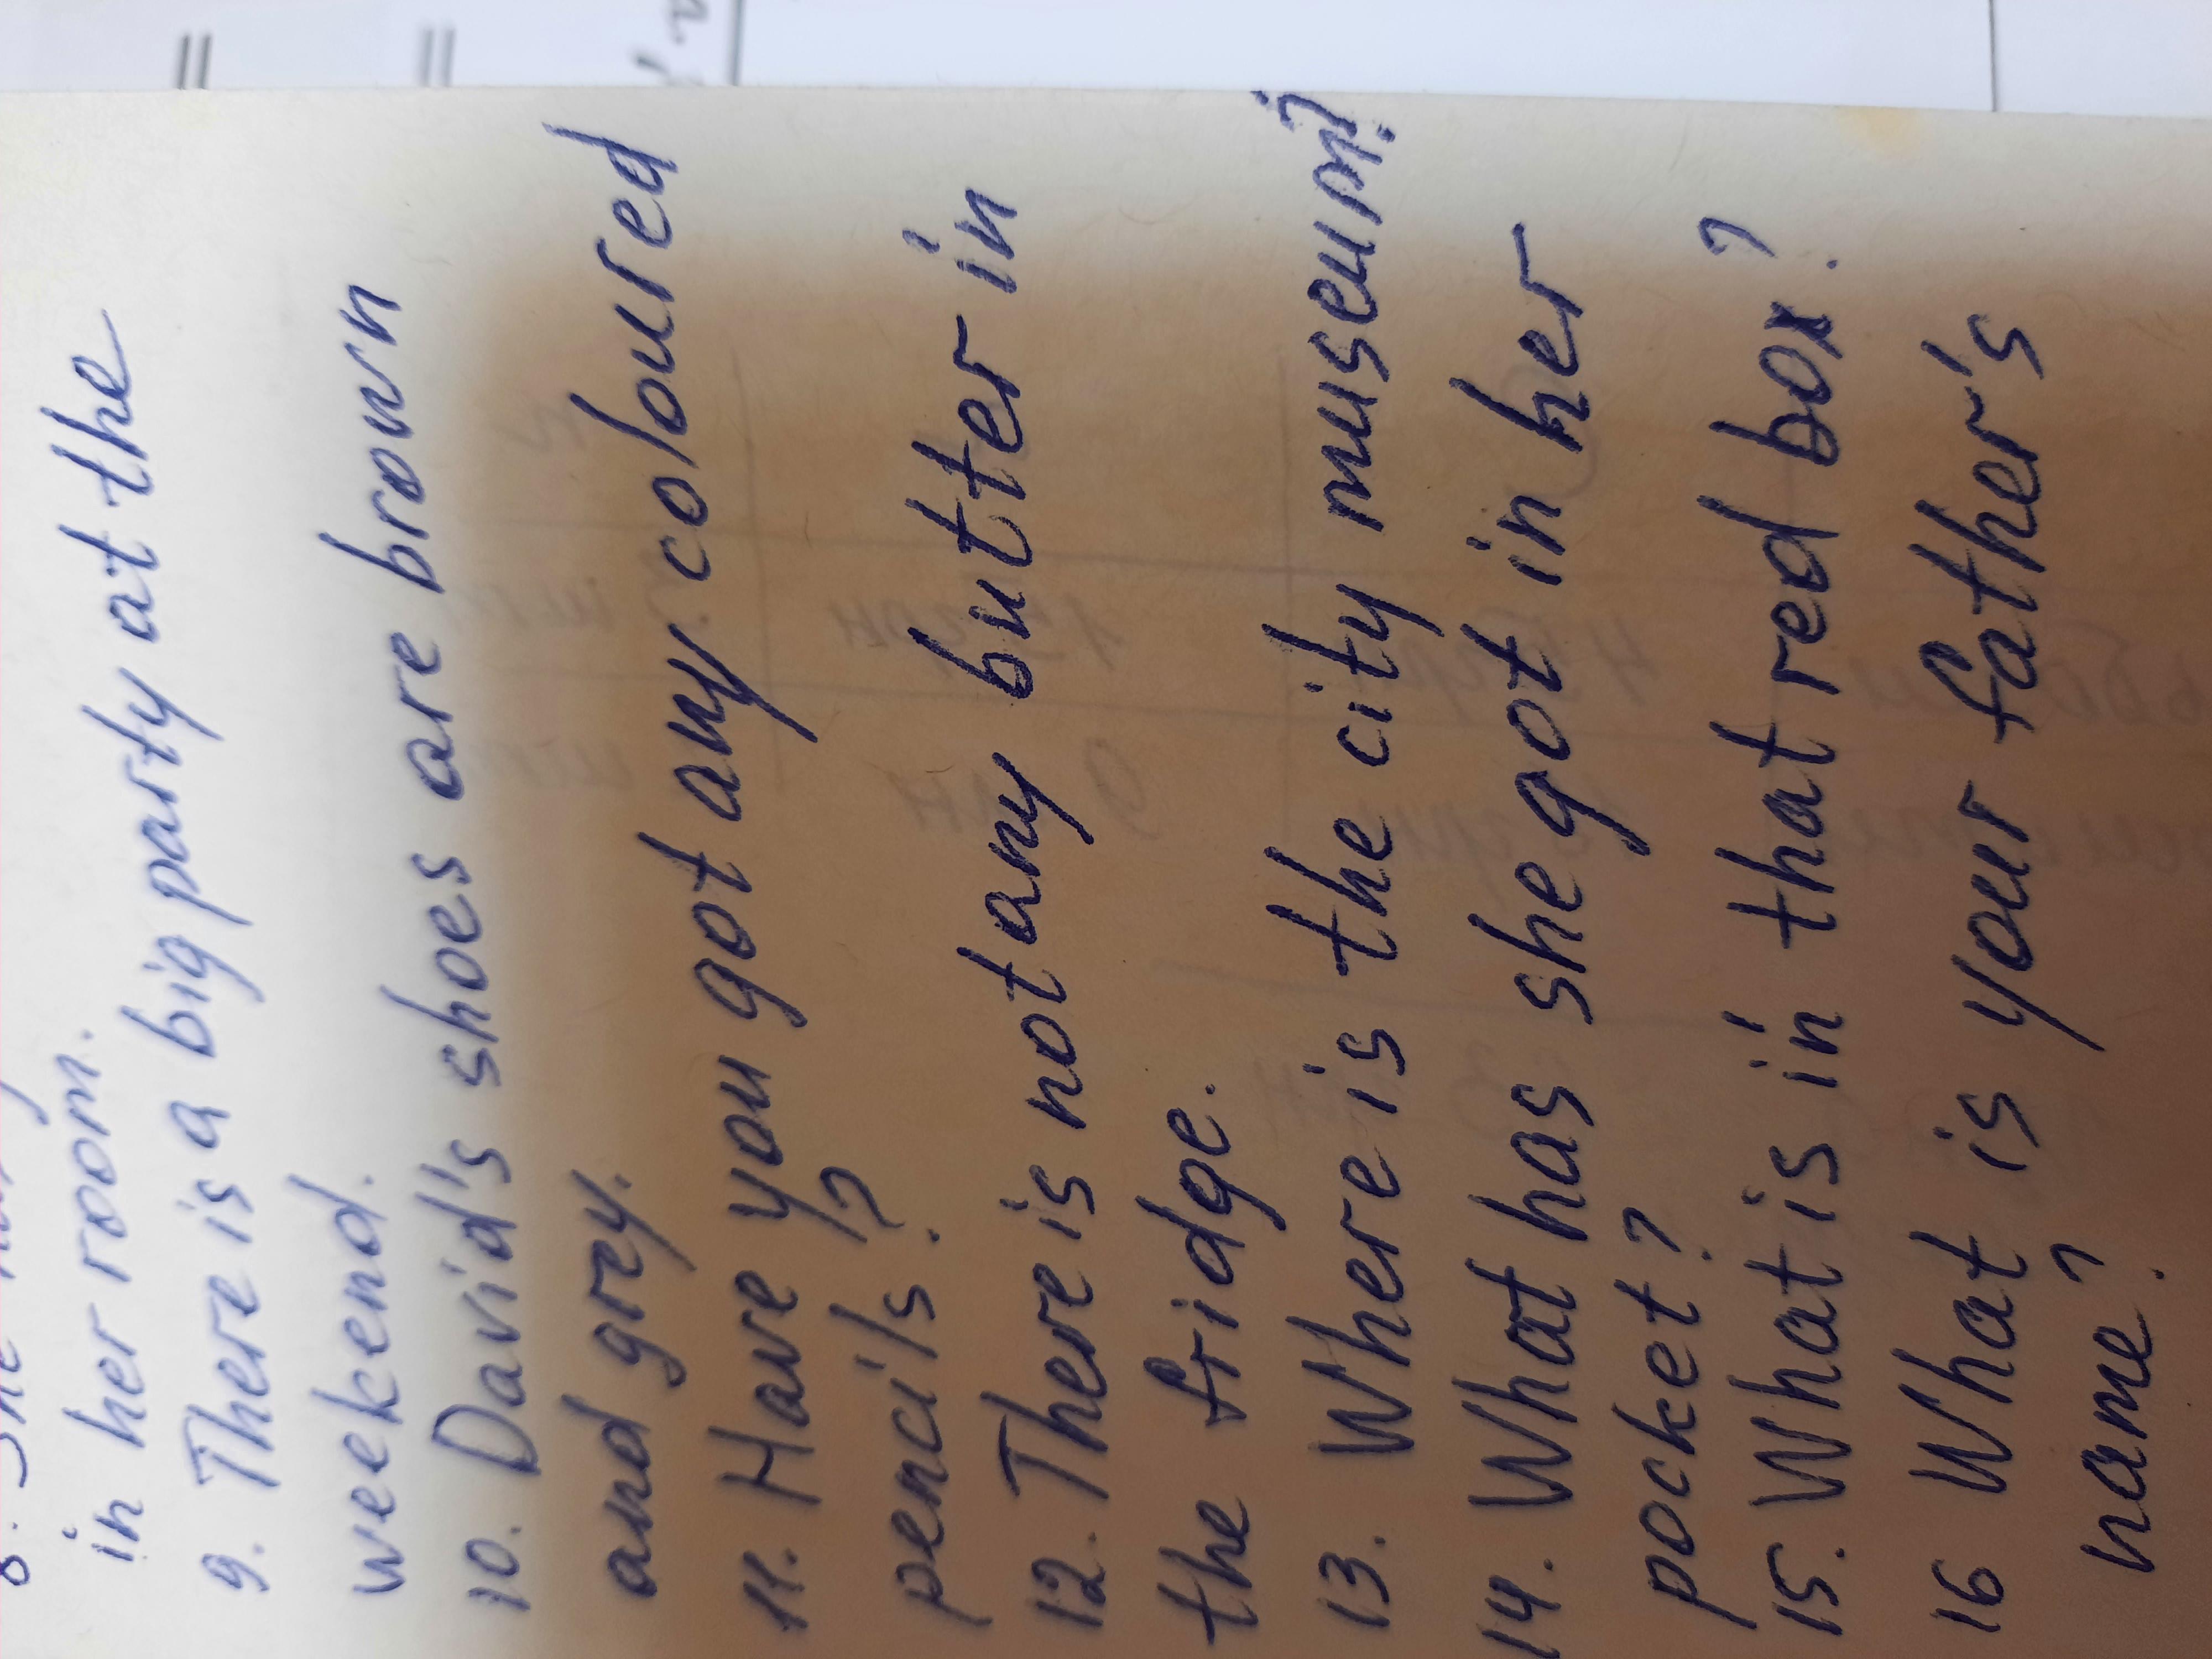 8. She
in her room.
9. There is a big party at the
weekend.
10. David's shoes are brown
and grey.
11. Have you got any coloured
pencils?
12. There is not any butter in
the fridge.
13. Where is the city museum?
14. What has she got in her
pocket?
15. What is in that red box?
16 What is your father's
name?